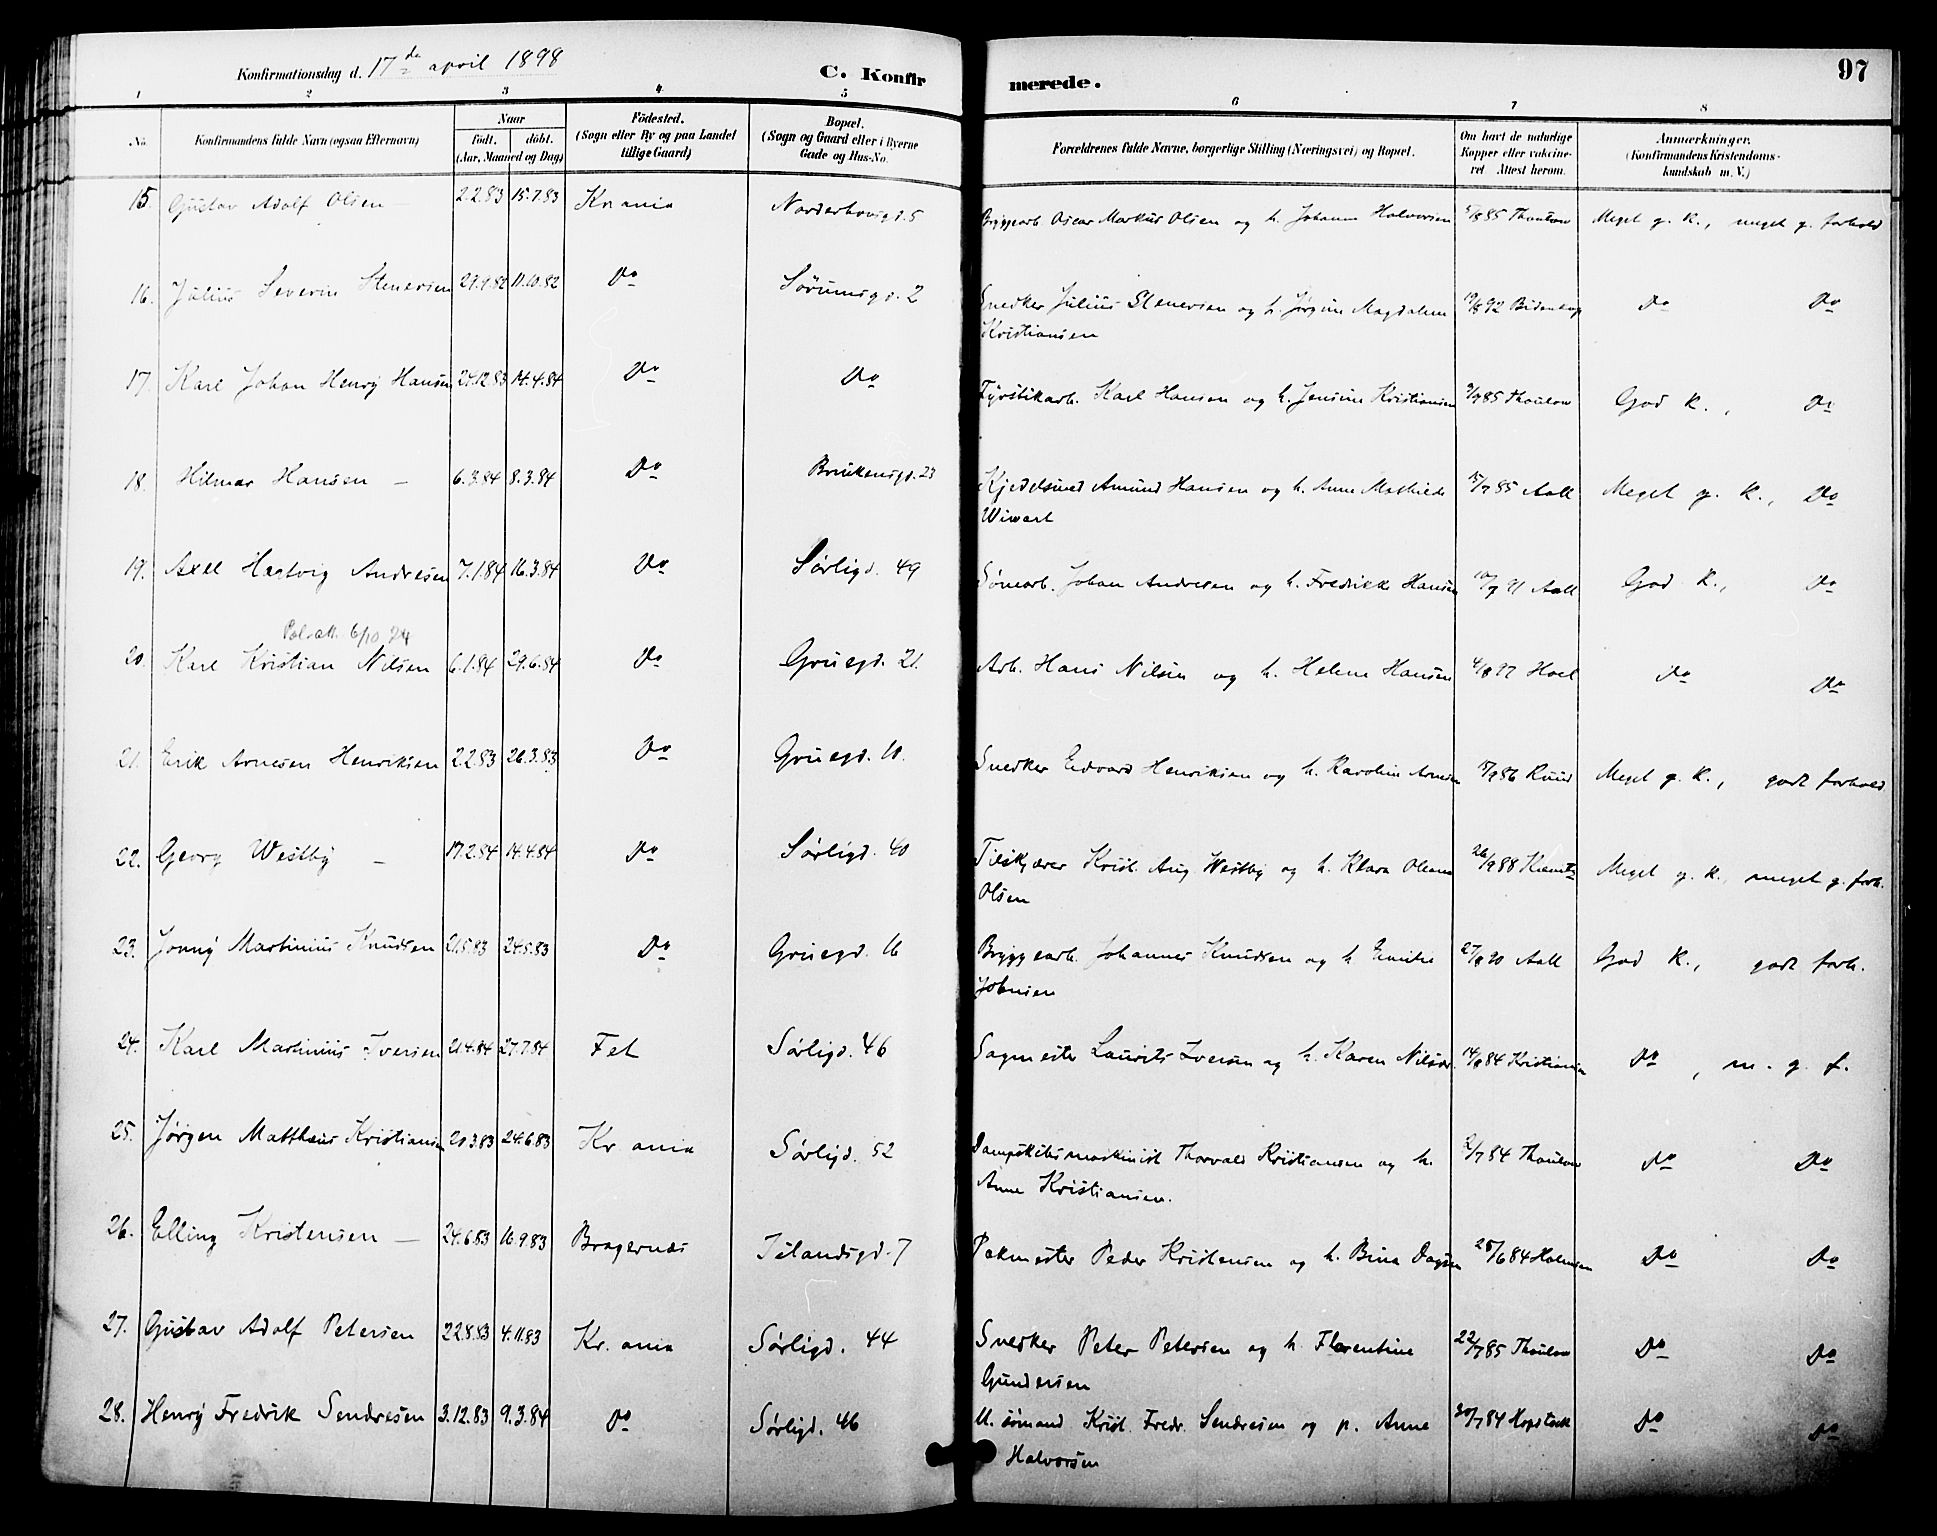 Konfirmationsdag d. 17de april 1898 C. Konfirmerede. 97
1 2 3 4 5 6 7 8
No. Konfirmandens fulde Navn (ogsaa Efternavn) Naar födt. döbt. (Aar, Maaned og Dag) Födested. (Sogn eller By og paa Landet tillige Gaard) Bopæl. (Sogn og Gaard eller i Byerne Gade og Hus-No. Forældrenes fulde Navne, borgerlige Stilling (Næringsvei) og Bopæl. Om havt de naturlige Kopper eller vakcineret Attest herom. Anmærkninger. (Konfirmandens Kristendomskundskab m. V.)
15. Gustav Adolf Olsen – 2.2.83 15.7.83 Kr ania Norderhovsgd. 5 Bryggearb. Oscar Markus Olsen og h. Johanne Halvorsen /885 Thaulow Meget g. K., meget g. forhold
16. Julius Severin Stenersen 29.9.82 11.10.82 Do Sørumsgd. 2 Snedker Julius Stenersen og h. Jørgine Magdalene
Kristiansen 19/892 Do Do
17. Karl Johan Henry Hansen 29.12.83 14.4.84 Do Do Fyrstikarb. Karl Hansen og h. Jensine Kristiansen 3/985 Thaulow God K., Do
18. Hilmar Hansen – 6.3.84 8.3.84 Do Brinkensgd. 23 Kjedelsmed Amund Hansen og h. Anne Mathilde
Wiwart 15/785 Aall Meget g. K., Do
19. Axel Hartvig Andresen 7.1.84 16.3.84 Do Sørligd. 49 Sømarb. Johan Andresen og h. Fredrikke Hansen 10/791 Aall God K., Do
6/10 74
20. Karl Kristian Nilsen 6.1.84 29.6.84 Do Gruegd. 21 Arb. Hans Nilsen og h. Helene Hansen 4/897 Hoel Do Do
21. Erik Arnesen Henriksen 2.2.83 26.3.83 Do Gruegd. 10. Snedker Edvard Henriksen og h. Karoline Arnesen /986 Ruud Meget g. K., godt forhold
22. Georg Westby – 17.2.84 14.4.84 Do Sørligd. 40 Tilskjærer Krist. Aug. Westby og h. Klara Oleane
Olsen 26/988 Meget g. K., meget g. forh.
23. Jonny Martinius Knudsen 21.5.83 24.5.83 Do Gruegd. 16 Bryggearb. Johannes Knudsen og h. Emilie
Johnsen 27/890 Aall God K., godt forh.
24. Karl Martinius Iversen 21.4.84 27.7.84 Fet Sørligd. 46 Sagmester Laurits Iversen og h. Karen Nilsdr. 14/984 Kristiania Do, m. g. f.
25. Jørgen Matthæus Kristiansen 20.3.83 24.6.83 Kr. ania Sørligd. 52 Dampskibsmaskinist Thorvald Kristiansen og h.
Anne Kristiansen. 2/784 Thaulow Do Do
26. Elling Kristensen – 24.6.83 16.9.83 Bragernæs Islandsgd. 7 Pakmester Peder Kristensen og h. Bina Dagsen 25/684 Holmsen Do Do
27. Gustav Adolf Petersen 22.8.83 4.11.83 Kr. ania Sørligd. 44 Snedker Peter Petersen og h. Florentine
Gundersen 22/785 Thaulow Do Do
28. Henry Fredrik Sendresen 3.12.83 9.3.84 Do Sørligd. 46 U. sømand Krist. Fredr. Sendresen og p. Anne
Halvorsen 30/784 Hopstock Do Do